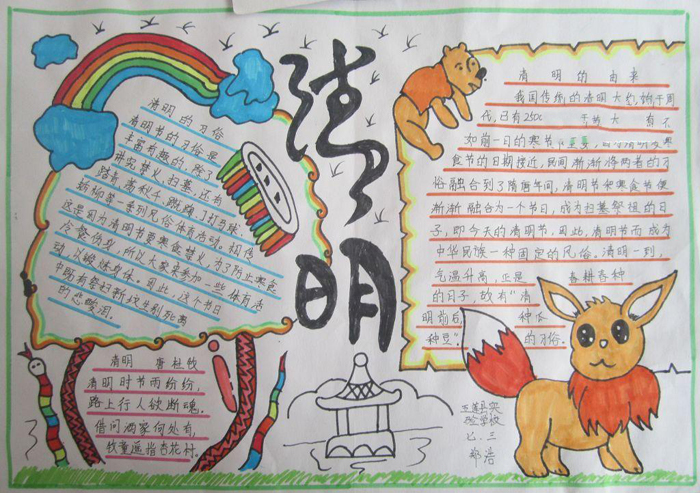 清明
清明的习俗
清明节的习俗是
丰富有趣的,除了
讲究禁火、扫墓,还有
踏青、荡秋千、蹴鞠、打马球、
插柳等一系列风俗体育活动。相传
这是因为清明节要寒食禁火,为了防止寒食
冷餐伤身,所以大家来参加一些体育活
动,以锻炼身体。因此,这个节日
中既有祭扫新坟生别死离
的悲酸泪。
清明 唐 杜牧
清明时节雨纷纷,
路上行人欲断魂。
借问酒家何处有,
牧童遥指杏花村。
清明的由来
我国传统的清明大约始于周
代,已有250
如前一日的寒节
食节的日期接近,民间渐渐将两者的习
俗融合到了隋唐年间,清明节和寒食节便
渐渐融合为一个节日,成为扫墓祭祖的日
子,即今天的清明节,因此,清明节而成为
中华民族一种固定的风俗。清明一到,
气温升高,正是 春耕春种
的日子,故有“清
明前后, 种瓜
种豆” 的习俗。
五莲县实
验学校
七.三
郑浩